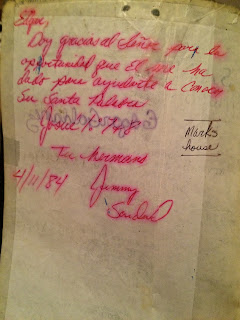 Edgar,
Doy gracias al Señor por la
oportunidad que El me ha
dado para ayudarte a conocer
Su Santa Palabra
Josue 1:7,8
Tu hermano
Mark's
house
4/11/84 Jimmy